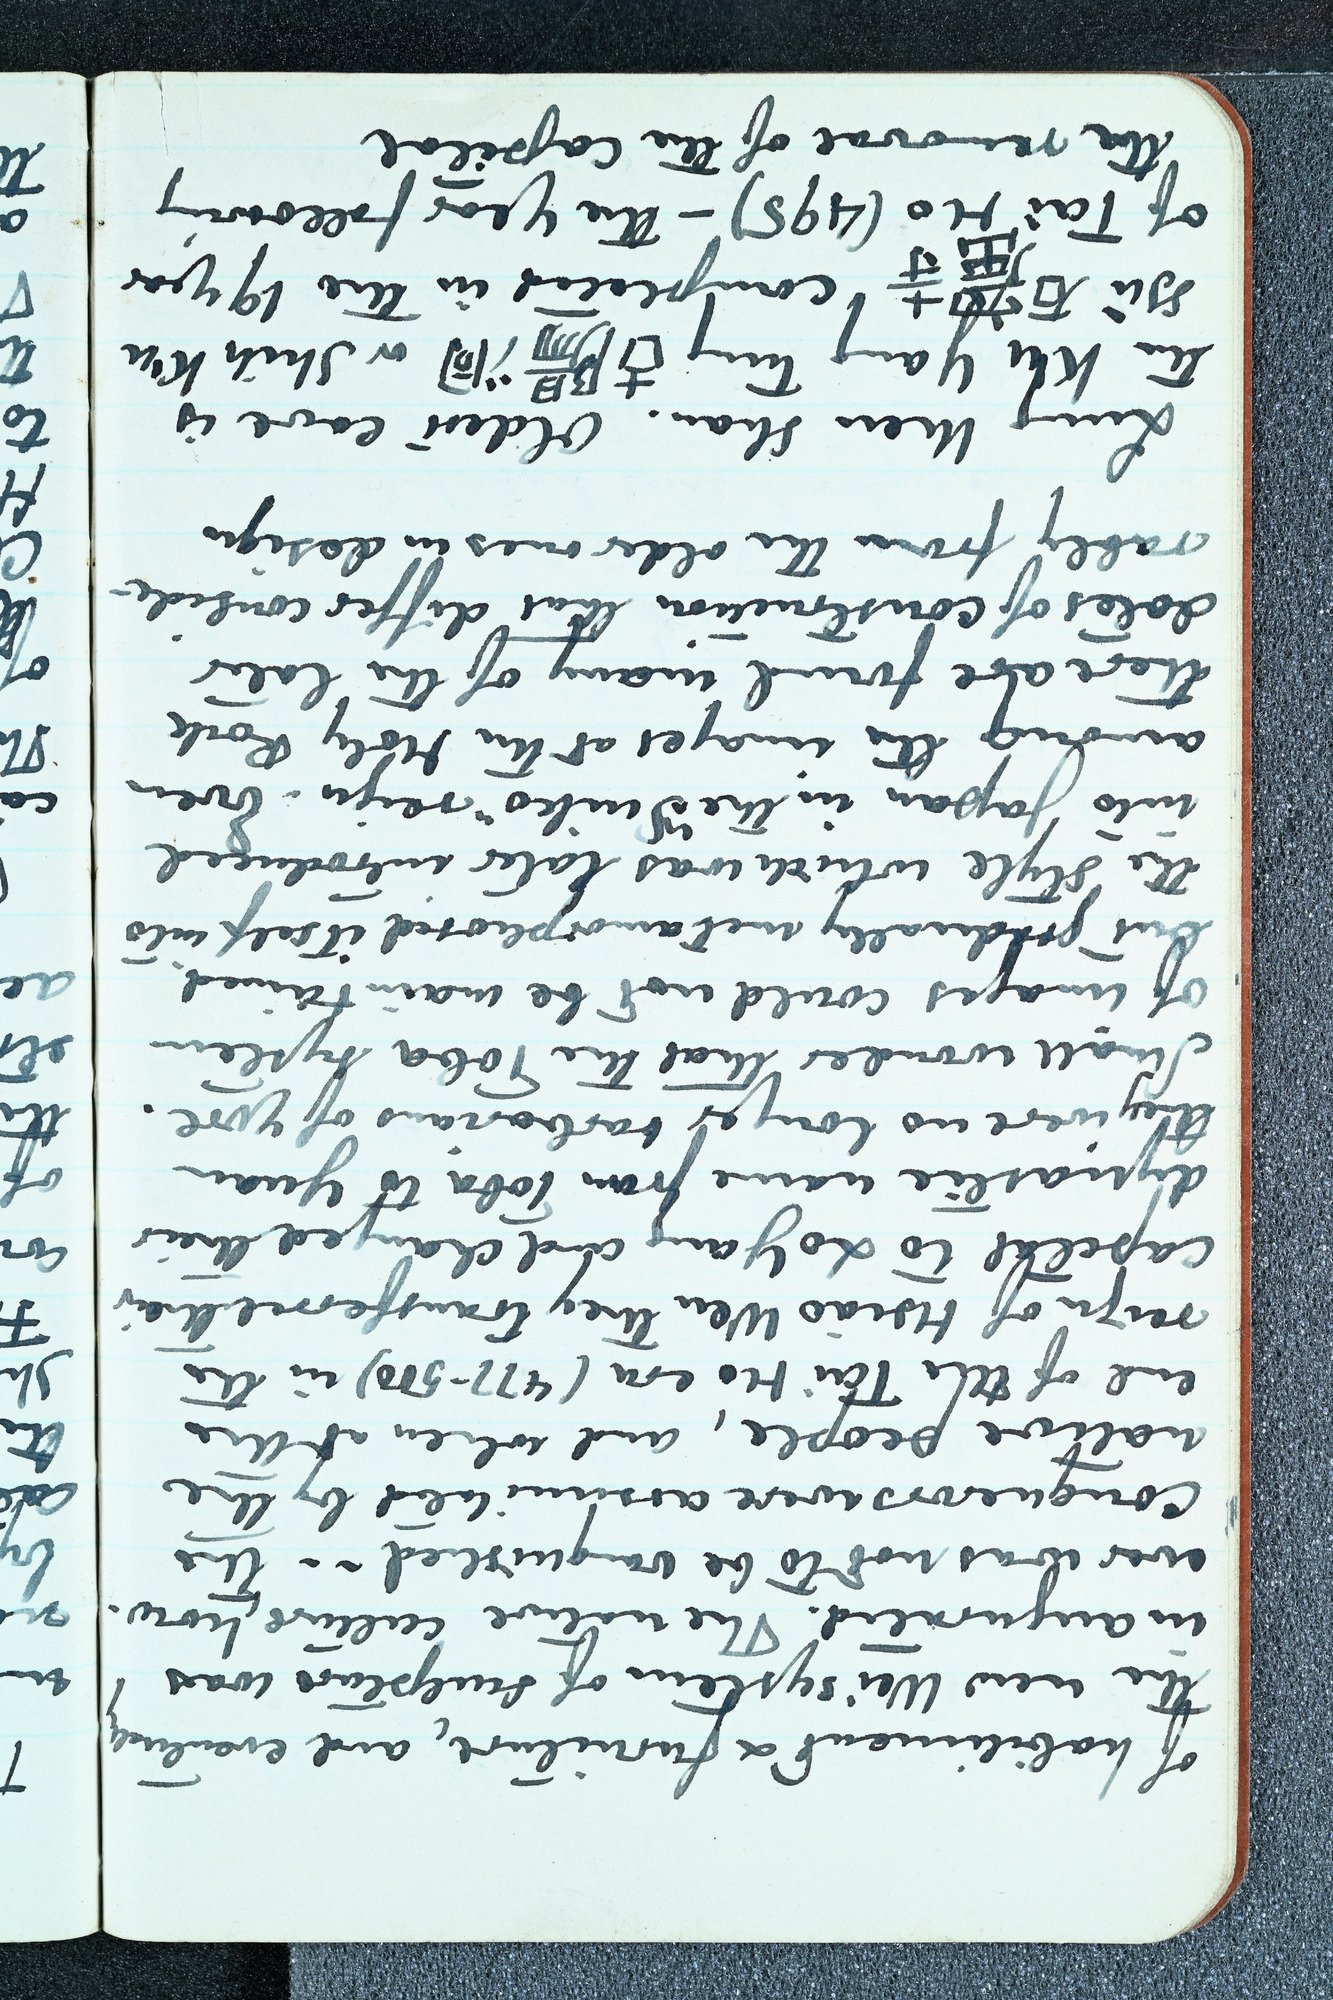 of habiliment & furniture, and eventually
the new Wei system of sculpture was
inaugurated. The native culture, how-
ever was not to be vanquished -- the
conquerors were assimilated by the
native people, and when at the
end of the Tai Ho era (477-500) in the
reign of Hsiao Wen they transferred their
capital to Loyang and changed their
dynastic name from Toba to Yuan
they were no longer barbarians of yore.
Small wonder that the Toba system
of images could not be maintained
but gradually metamorphosed itself into
the style which was later introduced
into Japan in the "Suiko" reign. Even
among the images at the Holy Rock
there are found many of the later
dates of construction that differ conside-
rably from the older ones in design

Lung Men Shan. Oldest cave is
the Ku Yang Tung 古陽洞 or Shih K'u
Ssu 石窟寺 completed in the 19 year
of Tai Ho (495) - the year following
the removal of the capital